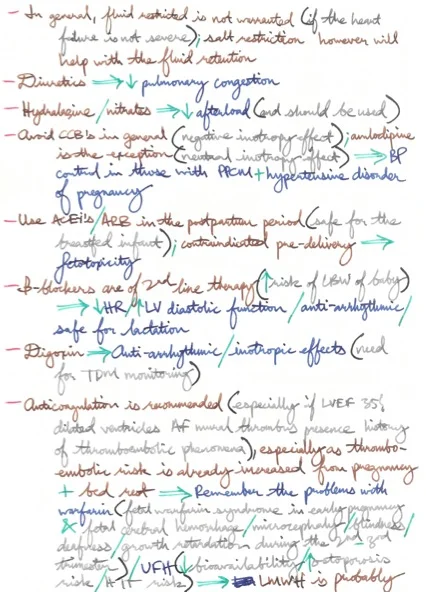 - In general, fluid restricted is not warranted (if the heart
failure is not severe); salt restriction however will
help with the fluid retention
- Diuretics ⇒ ↓ pulmonary congestion
- Hydralazine / nitrates ⇒ ↓ afterload (and should be used)
- Avoid CCB's in general (negative inotropy effect); amlodipine
is the exception (neutral inotropy effect) ⇒ BP
control in those with PPCM + hypertensive disorder
of pregnancy
- Use ACEi's / ARB in the postpartum period (safe for the
breastfed infant); contraindicated pre-delivery ⇒
fetotoxicity
- β-blockers are of 2nd-line therapy (↑ risk of LBW of baby)
⇒ ↓HR / ↑LV diastolic function / anti-arrhythmic /
safe for lactation
- Digoxin ⇒ Anti-arrhythmic / inotropic effects (need
for TDM monitoring)
- Anticoagulation is recommended (especially if LVEF 35%
dilated ventricles AF mural thrombus presence history
of thromboembolic phenomena), especially as thrombo-
embolic risk is already increased from pregnancy
+ bed rest ⇒ Remember the problems with
warfarin (fetal warfarin syndrome in early pregnancy
& fetal cerebral hemorrhage / microcephaly / blindness /
deafness / growth retardation during the 2nd-3rd
trimester) / UFH (↓ bioavailability / ↑ osteoporosis
risk / HIT risk) ⇒ LMWH is probably